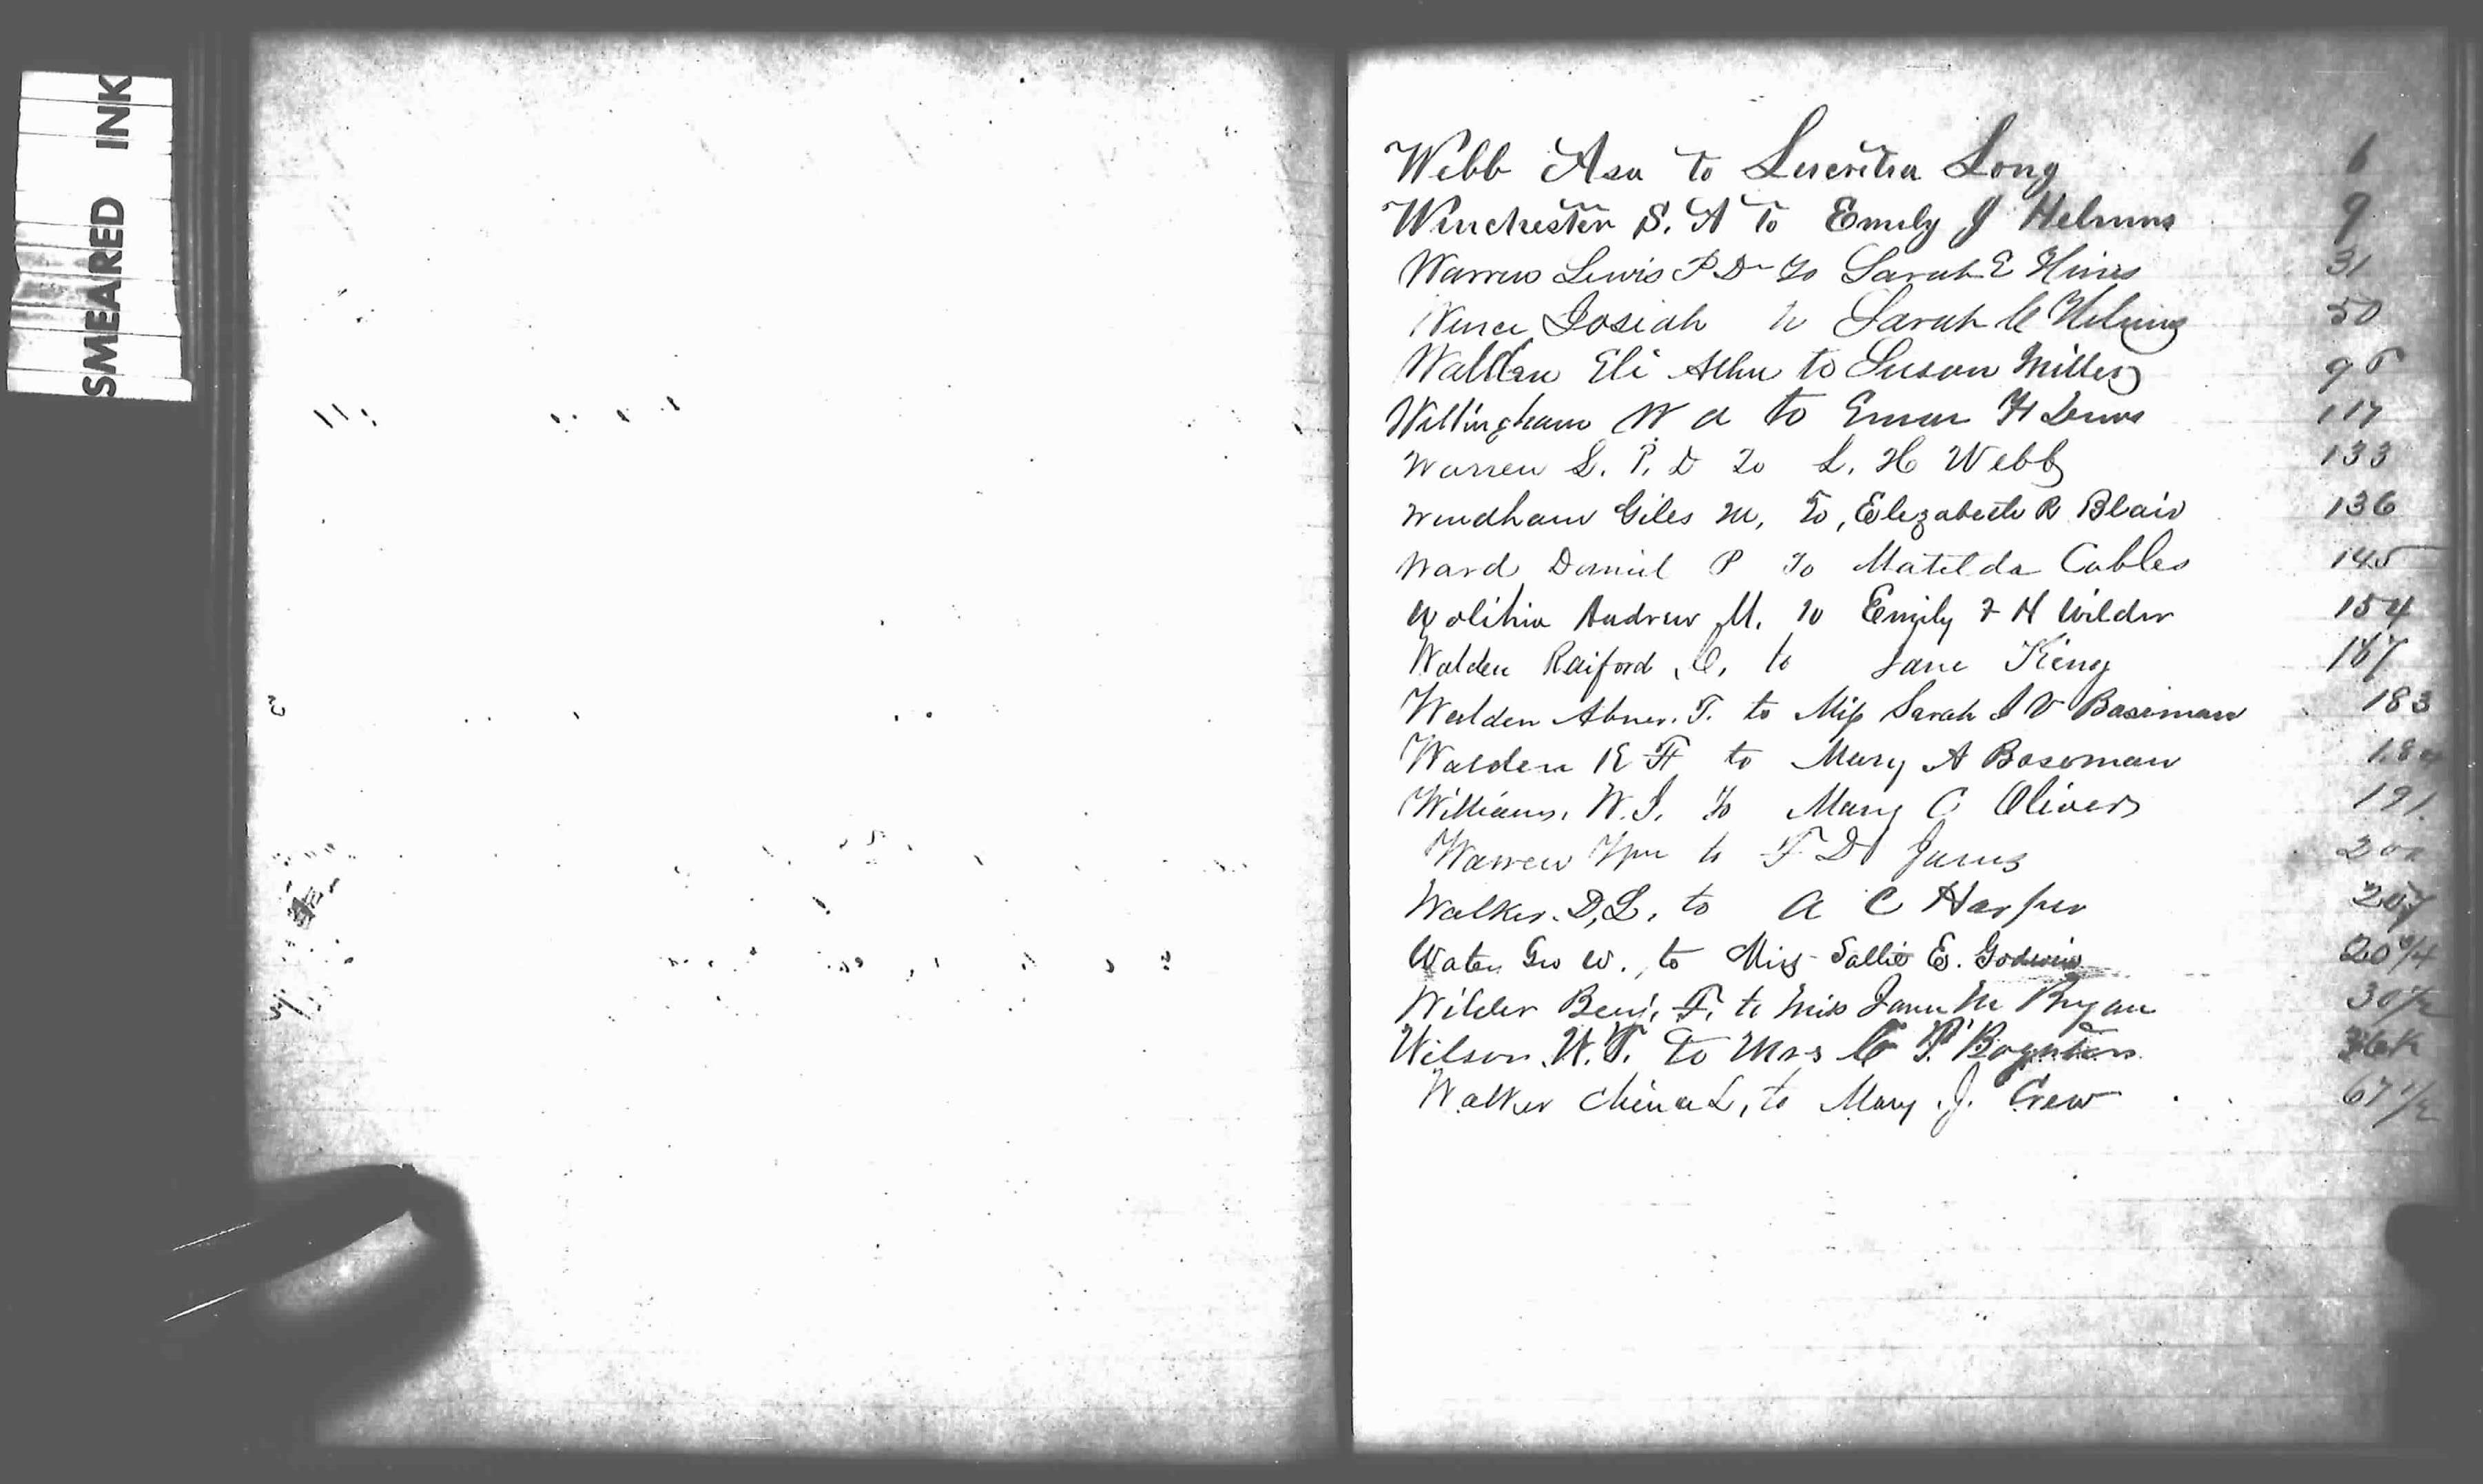 SMEARED INK
Webb Asa to Lucritia Long 6
Winchester S. A To Emily J Helmms 9
Warren Lewis P D To Sarah E Hines 31
Josiah to Sarah C 50
Eli to Susan Miller
Willingham W A to H 117
Warren L. P. D To L. H Webb 133
Windham Giles M, To, Elezabeth R Blair 136
Ward Daniel P To Matilda Cables 145
Andrew M. to Emily F H Wilder 154
Walden Raiford C, to Jane King 167
Walden Abner. T. to Miss Sarah J V Baseman 183
Walden R F to Mary A Boseman 184
Williams, W. J. to Mary C Olivers 191
Warren Wm to F D James
Walker. D, L, to A C Harper 207
Waters Geo W., to Miss Sallie E. Godwin
Wilder Benj. F. to Miss M Bryan
Wilson W. T. to Mrs C T. Boynton
Walker L, to Mary J. Crew 67 1/2